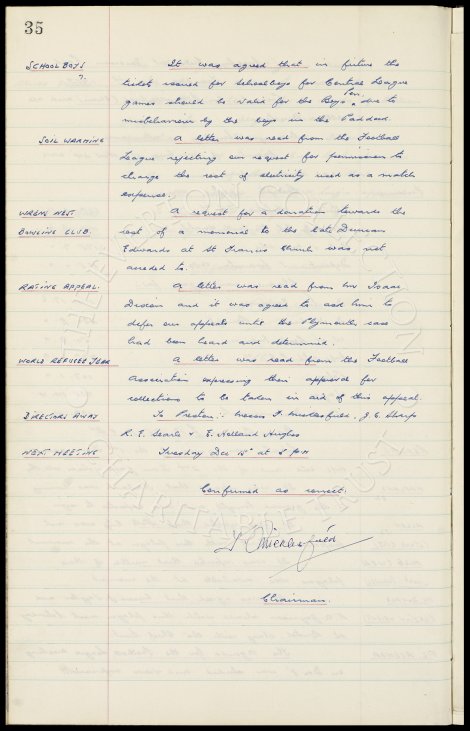 35
SCHOOLBOYS It was agreed that in future the
?. tickets issued for schoolboys for Central League
games should be valid for the Boys Pen, due to
misbehaviour by the boys in the Paddock.
SOIL WARMING A letter was read from the Football
League rejecting our request for permission to
charge the cost of electricity used as a match
expense.
WRENS NEST A request for a donation towards the
BOWLING CLUB. cost of a memorial to the late Duncan
Edwards at St Francis Church was not
acceded to.
RATING APPEAL. A letter was read from Mr Isaac
and it was agreed to ask him to
defer our appeals until the Plymouth case
had been heard and determined.
WORLD REFUGEE YEAR A letter was read from the Football
Association expressing their approval for
collections to be taken in aid of this appeal.
DIRECTORS AWAY To Preston:- Messrs T. Micklesfield, J. E. Sharp
R. E. Searle & E. Holland Hughes
NEXT MEETING Tuesday Dec at
Confirmed as correct.
Micklesfield
Chairman.
THE EVERTON COLLECTION
CHARITABLE TRUST